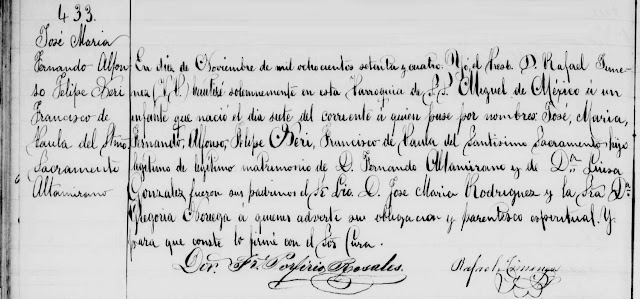 433.
José Maria
Fernando Alfon-
so Felipe Neri
Francisco de
Paula del Stmo
Sacramento
Altamirano
En dia de Noviembre de mil ochocientos setenta y cuatro. Yo, el Presb. D. Rafael Jime-
nez bautisé solemnemente en esta Parroquia de S. Miguel de México á un
infante que nació el dia siete del corriente á quien puse por nombres José, Maria,
Fernando, Alfonso, Felipe Neri, Francisco de Paula del Santisimo Sacramento hijo
legitimo de legitimo matrimonio de D. Fernando Altamirano y de Dª Luisa
Gonzalez fueron sus padrinos el Sr Lic. D. Jose Maria Rodriguez y la Sra Dª
Gregoria Noriega a quienes adverti su obligacion y parentesco espiritual. Y
para que conste lo firmé con el Sor Cura.
Dor. Fr. Porfirio Rosales. Rafael Jimenez